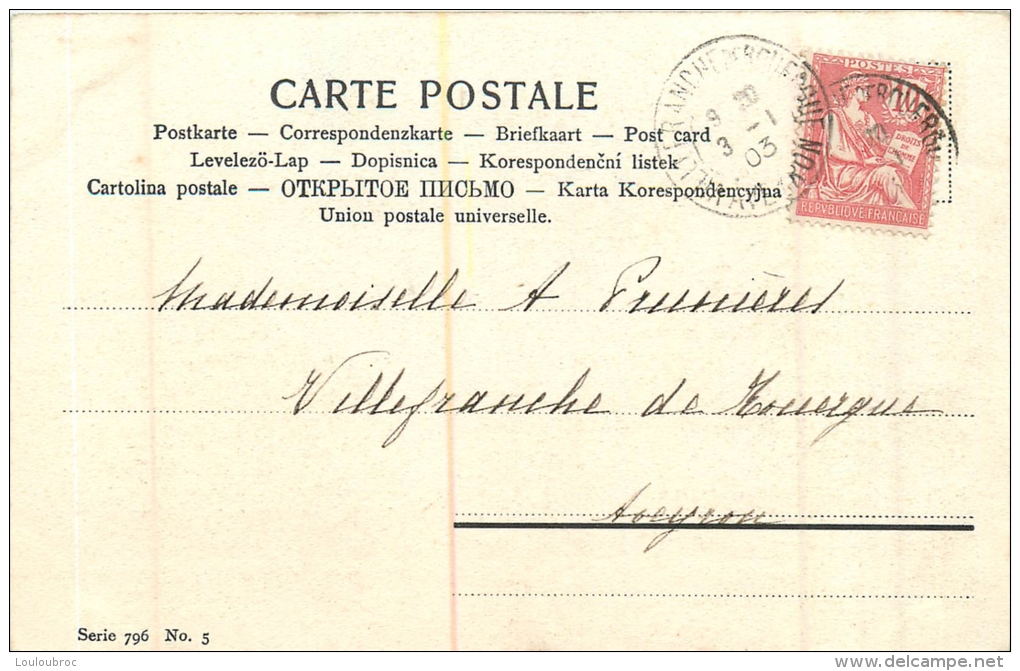 CARTE POSTALE
Postkarte — Correspondenzkarte — Briefkaart — Post card
Levelezö-Lap — Dopisnica — Korespondenční listek
Cartolina postale — ОТКРЫТОЕ ПИСЬМО — Karta Korespondencyjna
Union postale universelle.
POSTES
10
DROITS
DE
L'HOMME
REPVBLIQVE FRANÇAISE
VILLEFRANCHE DE ROUERGUE
AVEYRON
03
Mademoiselle A Prunières
Villefranche de Rouergue
Aveyron
Serie 796 No. 5
Louloubroc
delcampe.net